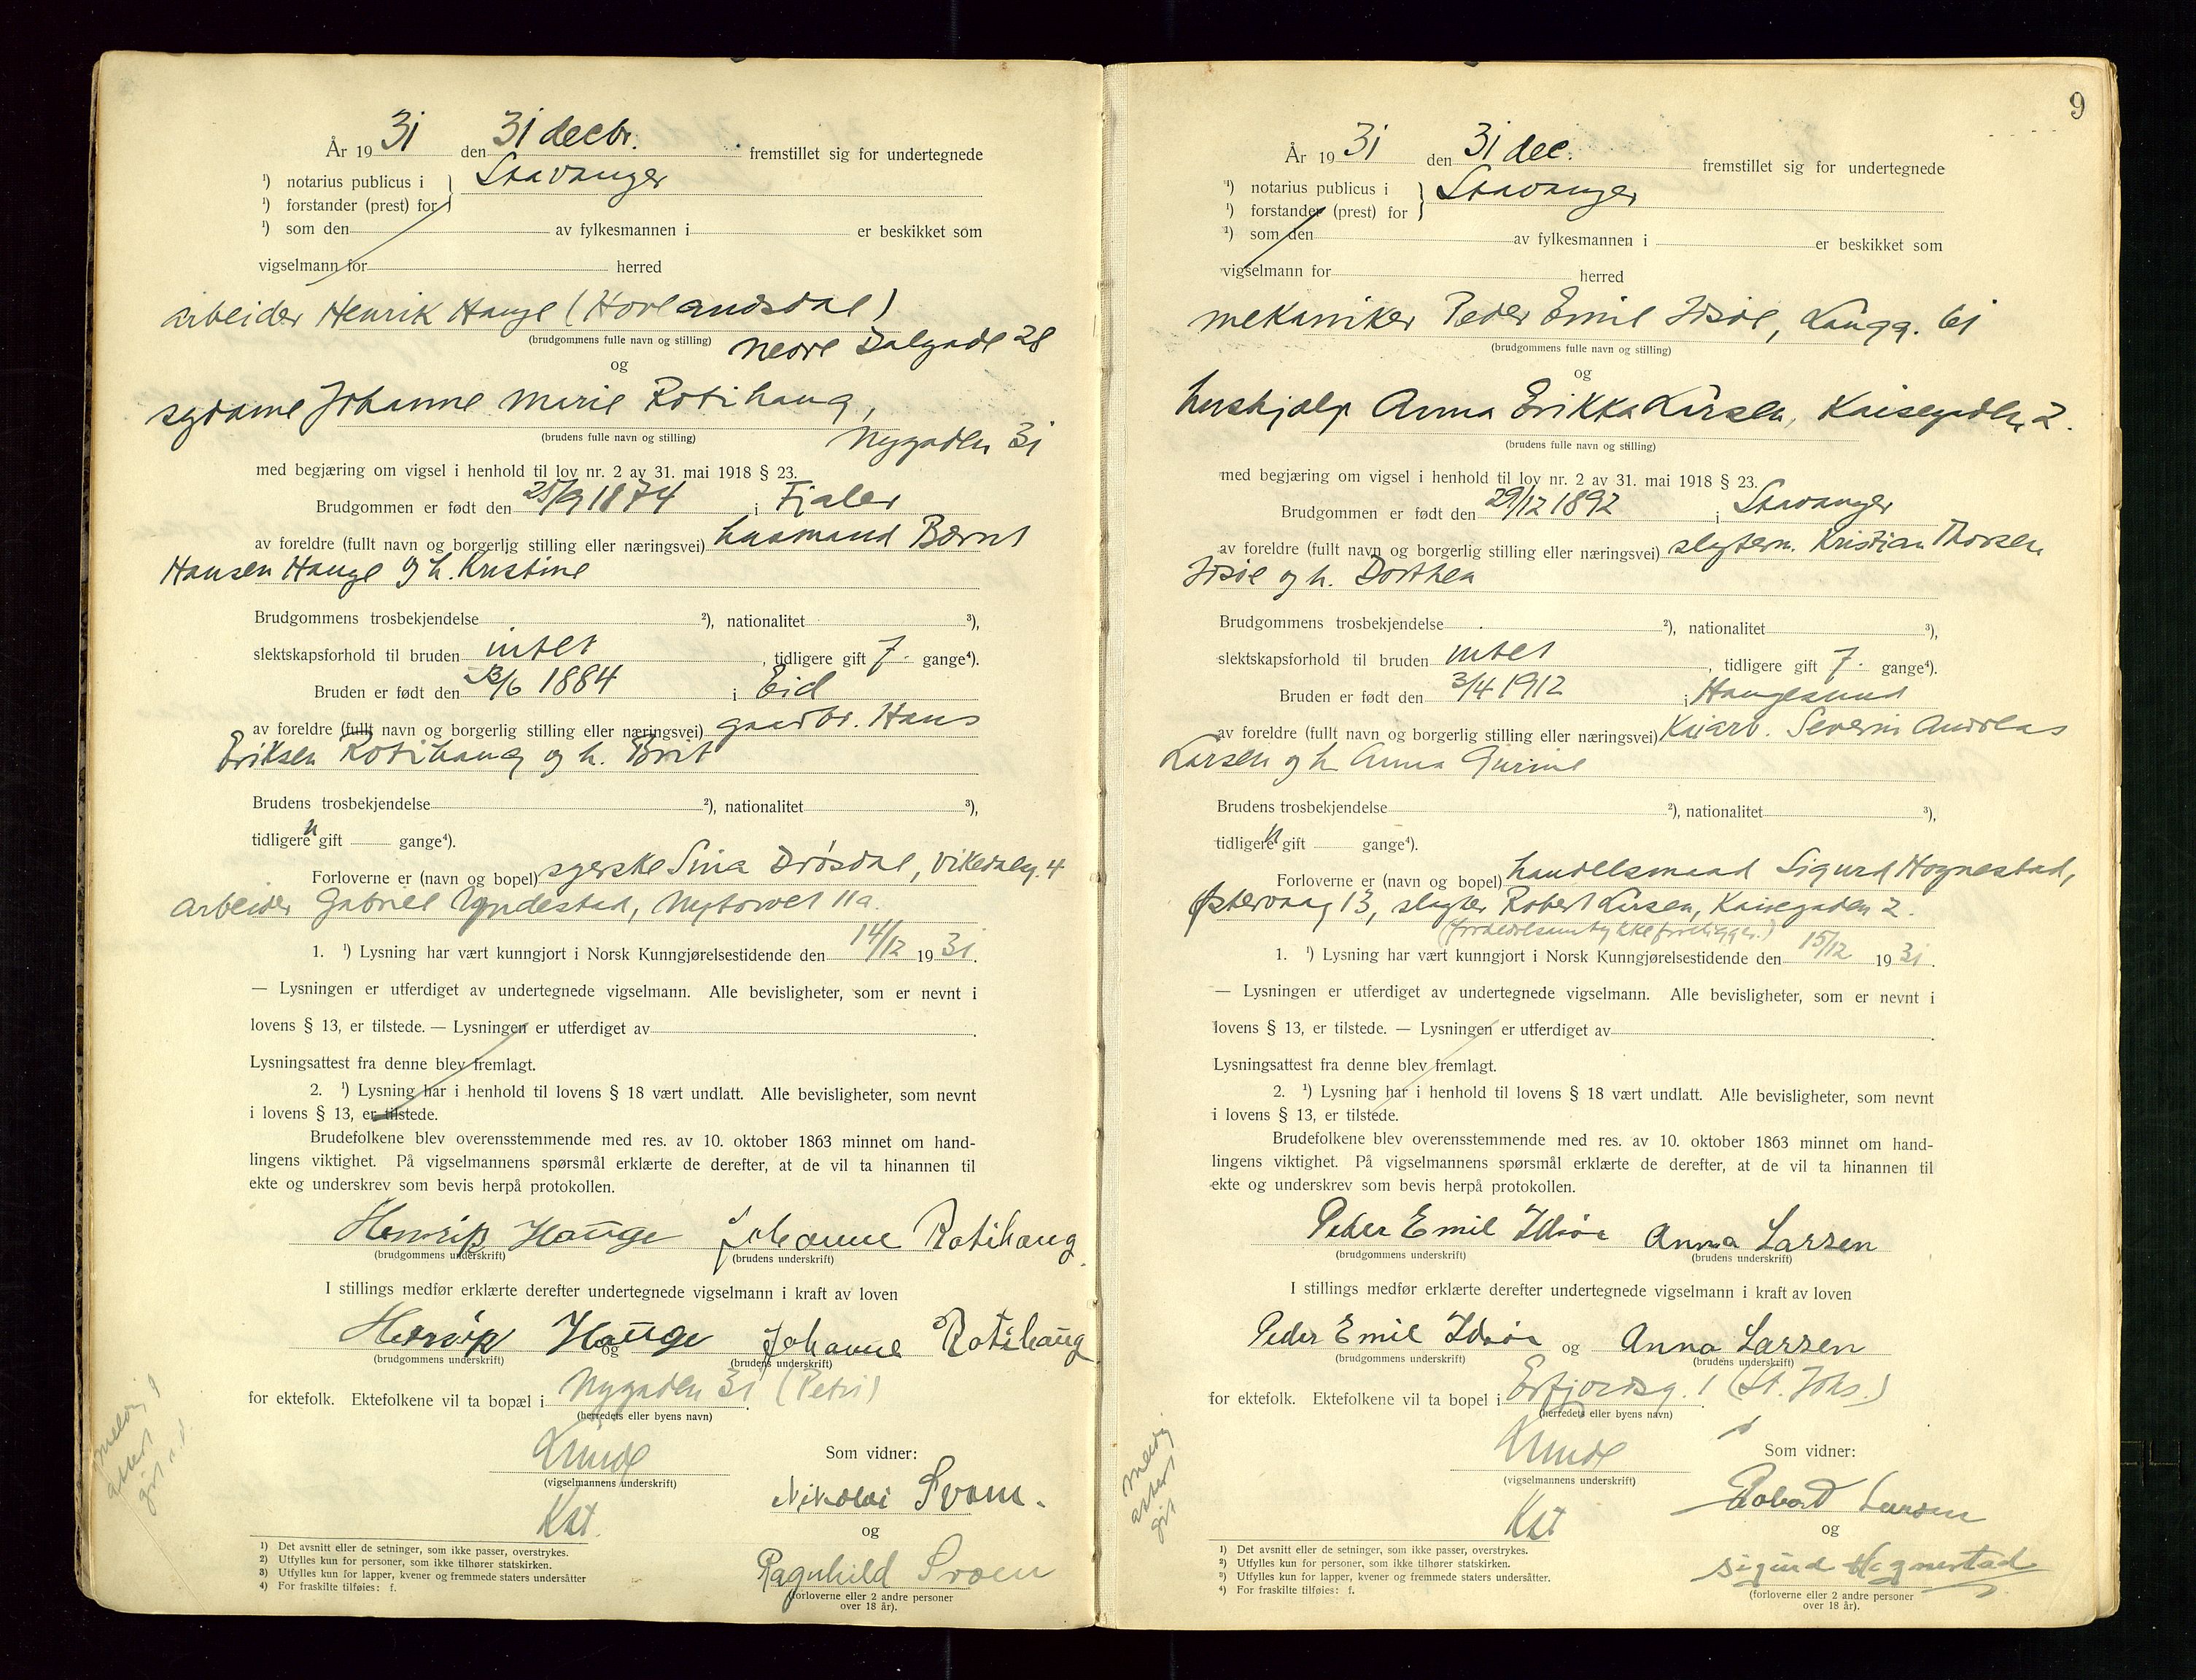 År 1931 den 31 decbr. fremstillet sig for undertegnede
¹) notarius publicus i } Stavanger
¹) forstander (prest) for
¹) som den av fylkesmannen i er beskikket som
vigselmann for herred
arbeider Henrik Hauge (Hovlandsdal)
(brudgommens fulle navn og stilling) Nedre Dalgade 28
og
sydame Johanne Marie Rotihaug,
(brudens fulle navn og stilling) Nygaden 31
med begjæring om vigsel i henhold til lov nr. 2 av 31. mai 1918 § 23.
Brudgommen er født den 25/9 1874 i Fjaler
av foreldre (fullt navn og borgerlig stilling eller næringsvei) husmand Bernt
Hansen Hauge og h. Kristine
Brudgommens trosbekjendelse ²), nationalitet ³),
slektskapsforhold til bruden intet, tidligere gift 7. gange⁴).
Bruden er født den /6 1884 i Eid
av foreldre (fullt navn og borgerlig stilling eller næringsvei) gaardbr. Hans
Eriksen Rotihaug og h. Brit
Brudens trosbekjendelse ²), nationalitet ³),
tidligere n gift gange⁴).
Forloverne er (navn og bopel) syerske Sina Drøsdal, Vikedalsg. 4
arbeider Gabriel Yndestad, Nytorvet 11a.
1. ¹) Lysning har vært kunngjort i Norsk Kunngjørelsestidende den 14/12 1931.
— Lysningen er utferdiget av undertegnede vigselmann. Alle bevisligheter, som er nevnt i
lovens § 13, er tilstede. — Lysningen er utferdiget av .
Lysningsattest fra denne blev fremlagt.
2. ¹) Lysning har i henhold til lovens § 18 vært undlatt. Alle bevisligheter, som nevnt
i lovens § 13, er tilstede.
Brudefolkene blev overensstemmende med res. av 10. oktober 1863 minnet om hand-
lingens viktighet. På vigselmannens spørsmål erklærte de derefter, at de vil ta hinannen til
ekte og underskrev som bevis herpå protokollen.
Henrik Hauge Johanne Rotihaug
(brudgommens underskrift) (brudens underskrift)
I stillings medfør erklærte derefter undertegnede vigselmann i kraft av loven
Henrik Hauge og Johanne Rotihaug
(brudgommens underskrift) (brudens underskrift)
for ektefolk. Ektefolkene vil ta bopæl i Nygaden 31 (Petri)
(herredets eller byens navn)
melding
attest
git
Som vidner:
(vigselmannens underskrift)
Nikolai Svoen.
Kst.
og
Ragnhild Svoen
(forloverne eller 2 andre personer
over 18 år).
1) Det avsnitt eller de setninger, som ikke passer, overstrykes.
2) Utfylles kun for personer, som ikke tilhører statskirken.
3) Utfylles kun for lapper, kvener og fremmede staters undersåtter
4) For fraskilte tilføies: f.
9
År 1931 den 31 dec. fremstillet sig for undertegnede
¹) notarius publicus i } Stavanger
¹) forstander (prest) for
¹) som den av fylkesmannen i er beskikket som
vigselmann for herred
mekaniker Peder Emil Idsøe, Langg. 61
(brudgommens fulle navn og stilling)
og
hushjælp Anna Erikka Larsen, Kaisegaden 2.
(brudens fulle navn og stilling)
med begjæring om vigsel i henhold til lov nr. 2 av 31. mai 1918 § 23.
Brudgommen er født den 29/12 1892 i Stavanger
av foreldre (fullt navn og borgerlig stilling eller næringsvei) slagterm. Kristian Thorsen
Idsøe og h. Dorthea
Brudgommens trosbekjendelse ²), nationalitet ³),
slektskapsforhold til bruden intet, tidligere gift 7. gange⁴).
Bruden er født den 3/4 1912 i Haugesund
av foreldre (fullt navn og borgerlig stilling eller næringsvei) Kaiarb. Severin Andreas
Larsen og h. Anna Gurine
Brudens trosbekjendelse ²), nationalitet ³),
tidligere n gift gange⁴).
Forloverne er (navn og bopel) handelsmand Sigurd Hognestad,
Østervaag 13, slagter Robert Larsen, Kaisegaden 2.
(foreldresamtykke foreligger.)
1. ¹) Lysning har vært kunngjort i Norsk Kunngjørelsestidende den 15/12 1931.
— Lysningen er utferdiget av undertegnede vigselmann. Alle bevisligheter, som er nevnt i
lovens § 13, er tilstede. — Lysningen er utferdiget av .
Lysningsattest fra denne blev fremlagt.
2. ¹) Lysning har i henhold til lovens § 18 vært undlatt. Alle bevisligheter, som nevnt
i lovens § 13, er tilstede.
Brudefolkene blev overensstemmende med res. av 10. oktober 1863 minnet om hand-
lingens viktighet. På vigselmannens spørsmål erklærte de derefter, at de vil ta hinannen til
ekte og underskrev som bevis herpå protokollen.
Peder Emil Idsøe Anna Larsen
(brudgommens underskrift) (brudens underskrift)
I stillings medfør erklærte derefter undertegnede vigselmann i kraft av loven
Peder Emil Idsøe og Anna Larsen
(brudgommens underskrift) (brudens underskrift)
for ektefolk. Ektefolkene vil ta bopel i Erfjordsg. 1 (St. Johs.)
(herredets eller byens navn)
melding
attest
git
Som vidner:
(vigselmannens underskrift)
Robert Larsen
Kst
og
Sigurd Hognestad
(forloverne eller 2 andre personer
over 18 år).
1) Det avsnitt eller de setninger, som ikke passer, overstrykes.
2) Utfylles kun for personer, som ikke tilhører statskirken.
3) Utfylles kun for lapper, kvener og fremmede staters undersåtter.
4) For fraskilte tilføies: f.